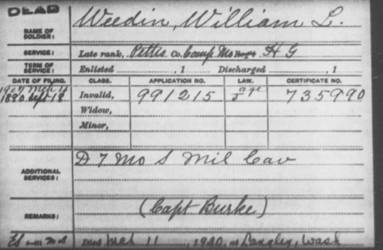 DEAD
NAME OF SOLDIER: Weedin, William L.
SERVICE: Late rank, Pettis Co. Camp Mo H G
TERM OF SERVICE: Enlisted , 1 Discharged , 1
DATE OF FILING. CLASS. APPLICATION NO. LAW. CERTIFICATE NO.
1890 Sept 18 Invalid, 991215 age 735990
Widow,
Minor,
ADDITIONAL SERVICES: D 7 Mo S Mil Cav
REMARKS: (Capt Burke)
Died Mch 11, 1920, at Langley, Wash